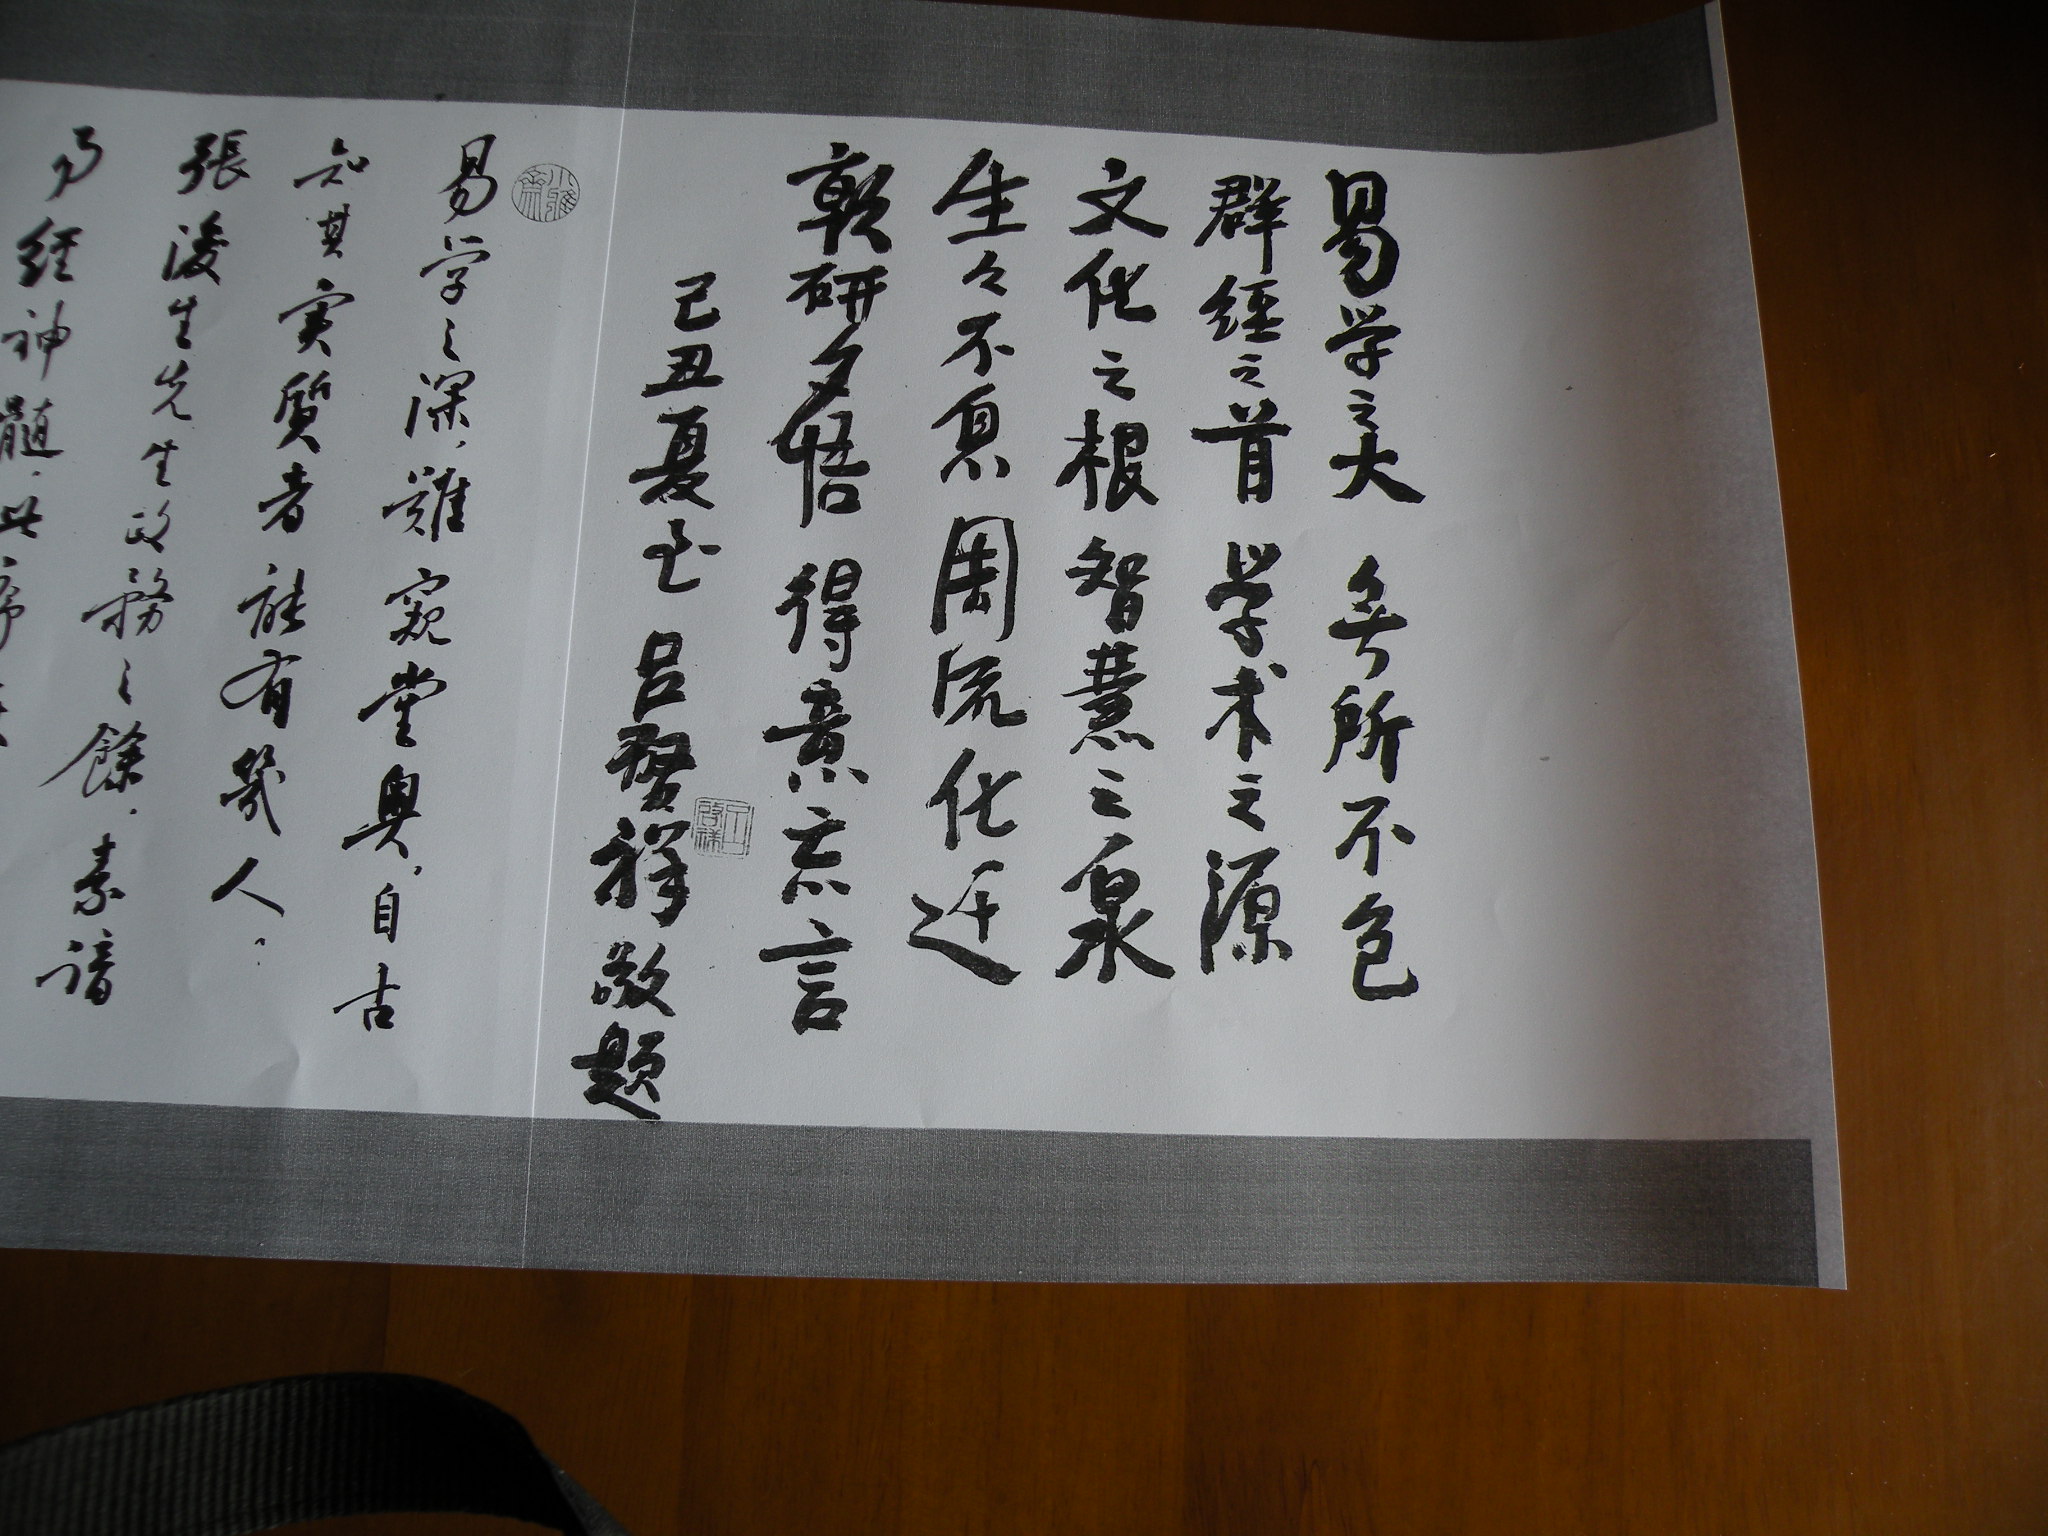 易学之大 無所不包
群經之首 学术之源
文化之根 智慧之泉
生々不息 周流化迁
朝研夕悟 得意忘言
己丑夏至 吕啓祥敬题
吕啓祥
易学之深,難窺堂奥,自古
知其实質者能有幾人。
張浚生先生政務之餘,素諳
易經神髓,